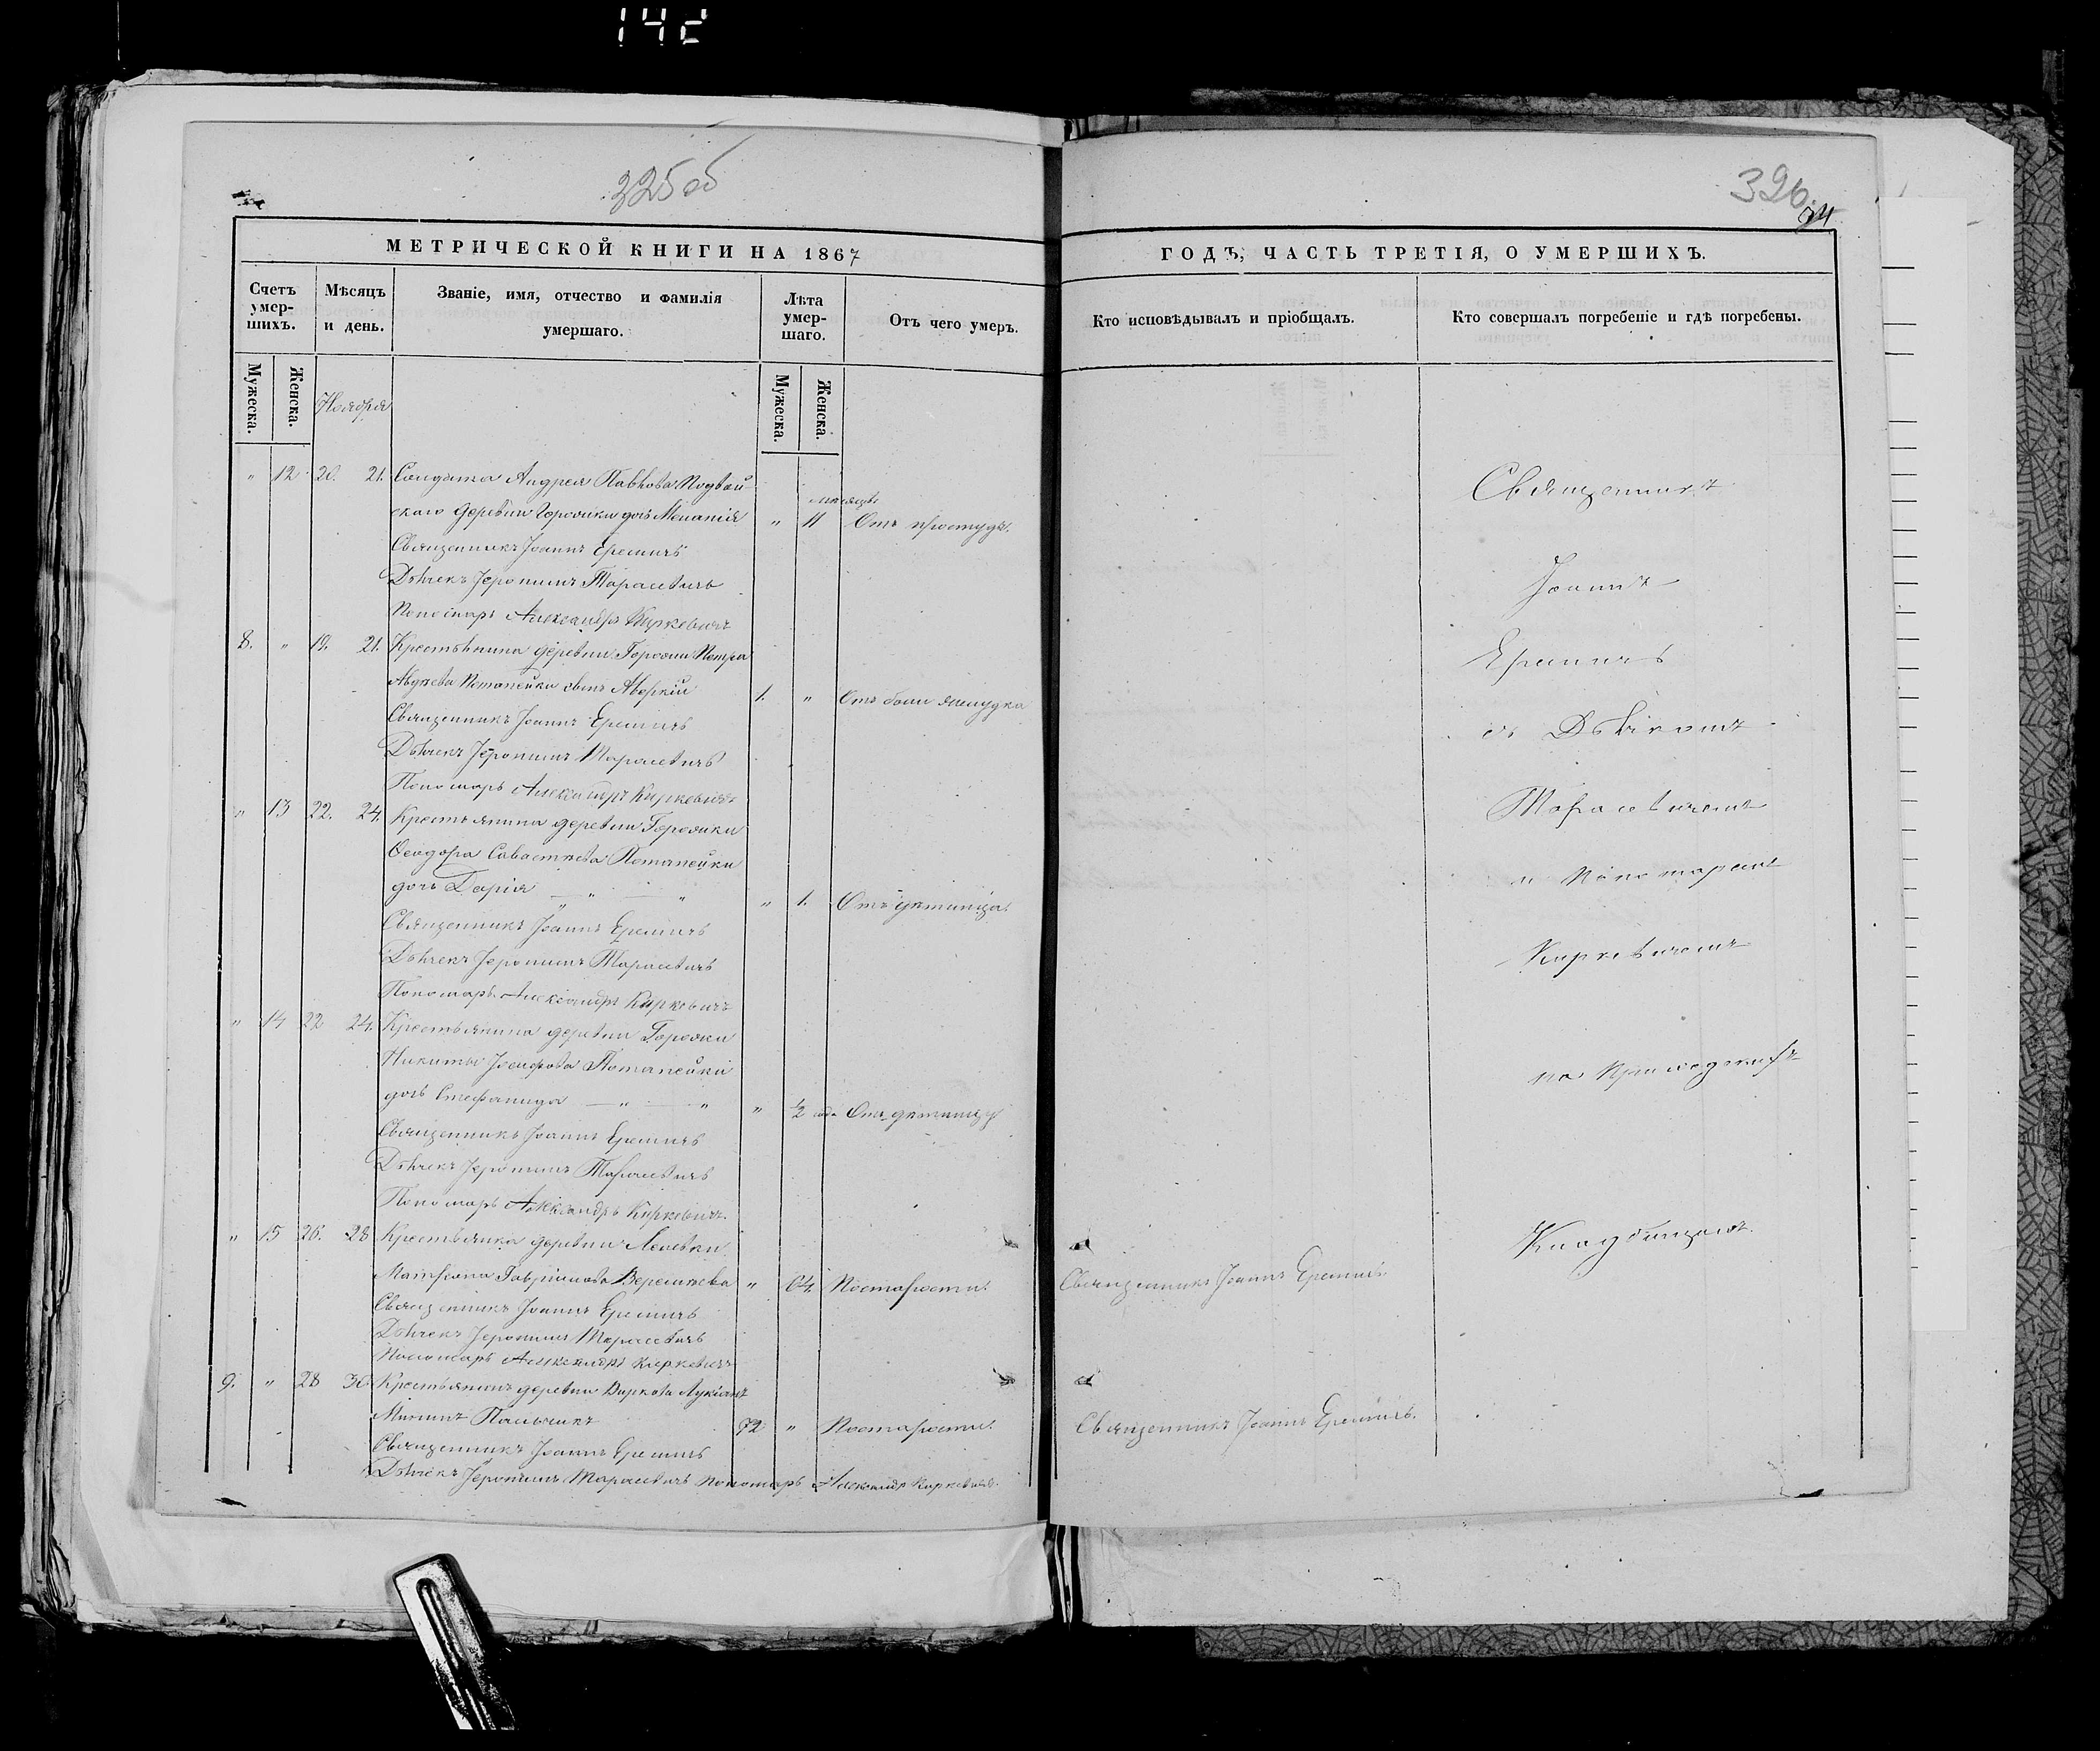 142
325 об
326
МЕТРИЧЕСКОЙ КНИГИ НА 1867
Счетъ умер-шихъ.
Мѣсяцъ и день.
Званіе, имя, отчество и фамилія умершаго.
Лѣта умер-шаго.
Отъ чего умеръ.
Мужеска.
Женска.
Ноября
Мужеска.
Женска.
" 12 20. 21. Солдата Андрея Павлова Подвой-
скаго деревни Горошки дочь Меланія " 11 мѣсяцъ Отъ простуды.
Священникъ Іоаннъ Еремичъ
Дьячекъ Іеронимъ Тарасевичъ
Пономарь Александръ Киркевичъ
8. " 19. 21. Крестьянина деревни Петра
Потапейки сынъ Аверкій 1. " Отъ боли желудка
Священникъ Іоаннъ Еремичъ
Дьячекъ Іеронимъ Тарасевичъ
Пономарь Александръ Киркевичъ
" 13 22. 24. Крестьянина деревни Горошки
Ѳеодора Савастіева Потапейки
дочь Дарія " 1. Отъ
Священникъ Іоаннъ Еремичъ
Дьячекъ Іеронимъ Тарасевичъ
Пономарь Александръ Киркевичъ
" 14 22 24. Крестьянина деревни Горошки
Никиты Іосифова Потапейки
дочь Стефанида " 1/2 года Отъ
Священникъ Іоаннъ Еремичъ
Дьячекъ Іеронимъ Тарасевичъ
Пономарь Александръ Киркевичъ.
" 15 26. 28 Крестьянка деревни
Гавріилова " 64. По старости.
Священникъ Іоаннъ Еремичъ
Дьячекъ Іеронимъ Тарасевичъ
Пономарь Александръ Киркевичъ
9. " 28 30 Крестьянинъ деревни Виркова Лукіанъ
Мининъ Пальчикъ 72 " По старости.
Священникъ Іоаннъ Еремичъ
Дьячекъ Іеронимъ Тарасевичъ Пономарь Александръ Киркевичъ.
ГОДЪ, ЧАСТЬ ТРЕТІЯ, О УМЕРШИХЪ.
Кто исповѣдывалъ и пріобщалъ.
Кто совершалъ погребеніе и гдѣ погребены.
Священникъ
Іоаннъ
Еремичъ
съ Дьячкомъ
Тарасевичемъ
и Пономаремъ
Киркевичемъ
на приходскихъ
Кладбищахъ.
Священникъ Іоаннъ Еремичъ
Священникъ Іоаннъ Еремичъ.